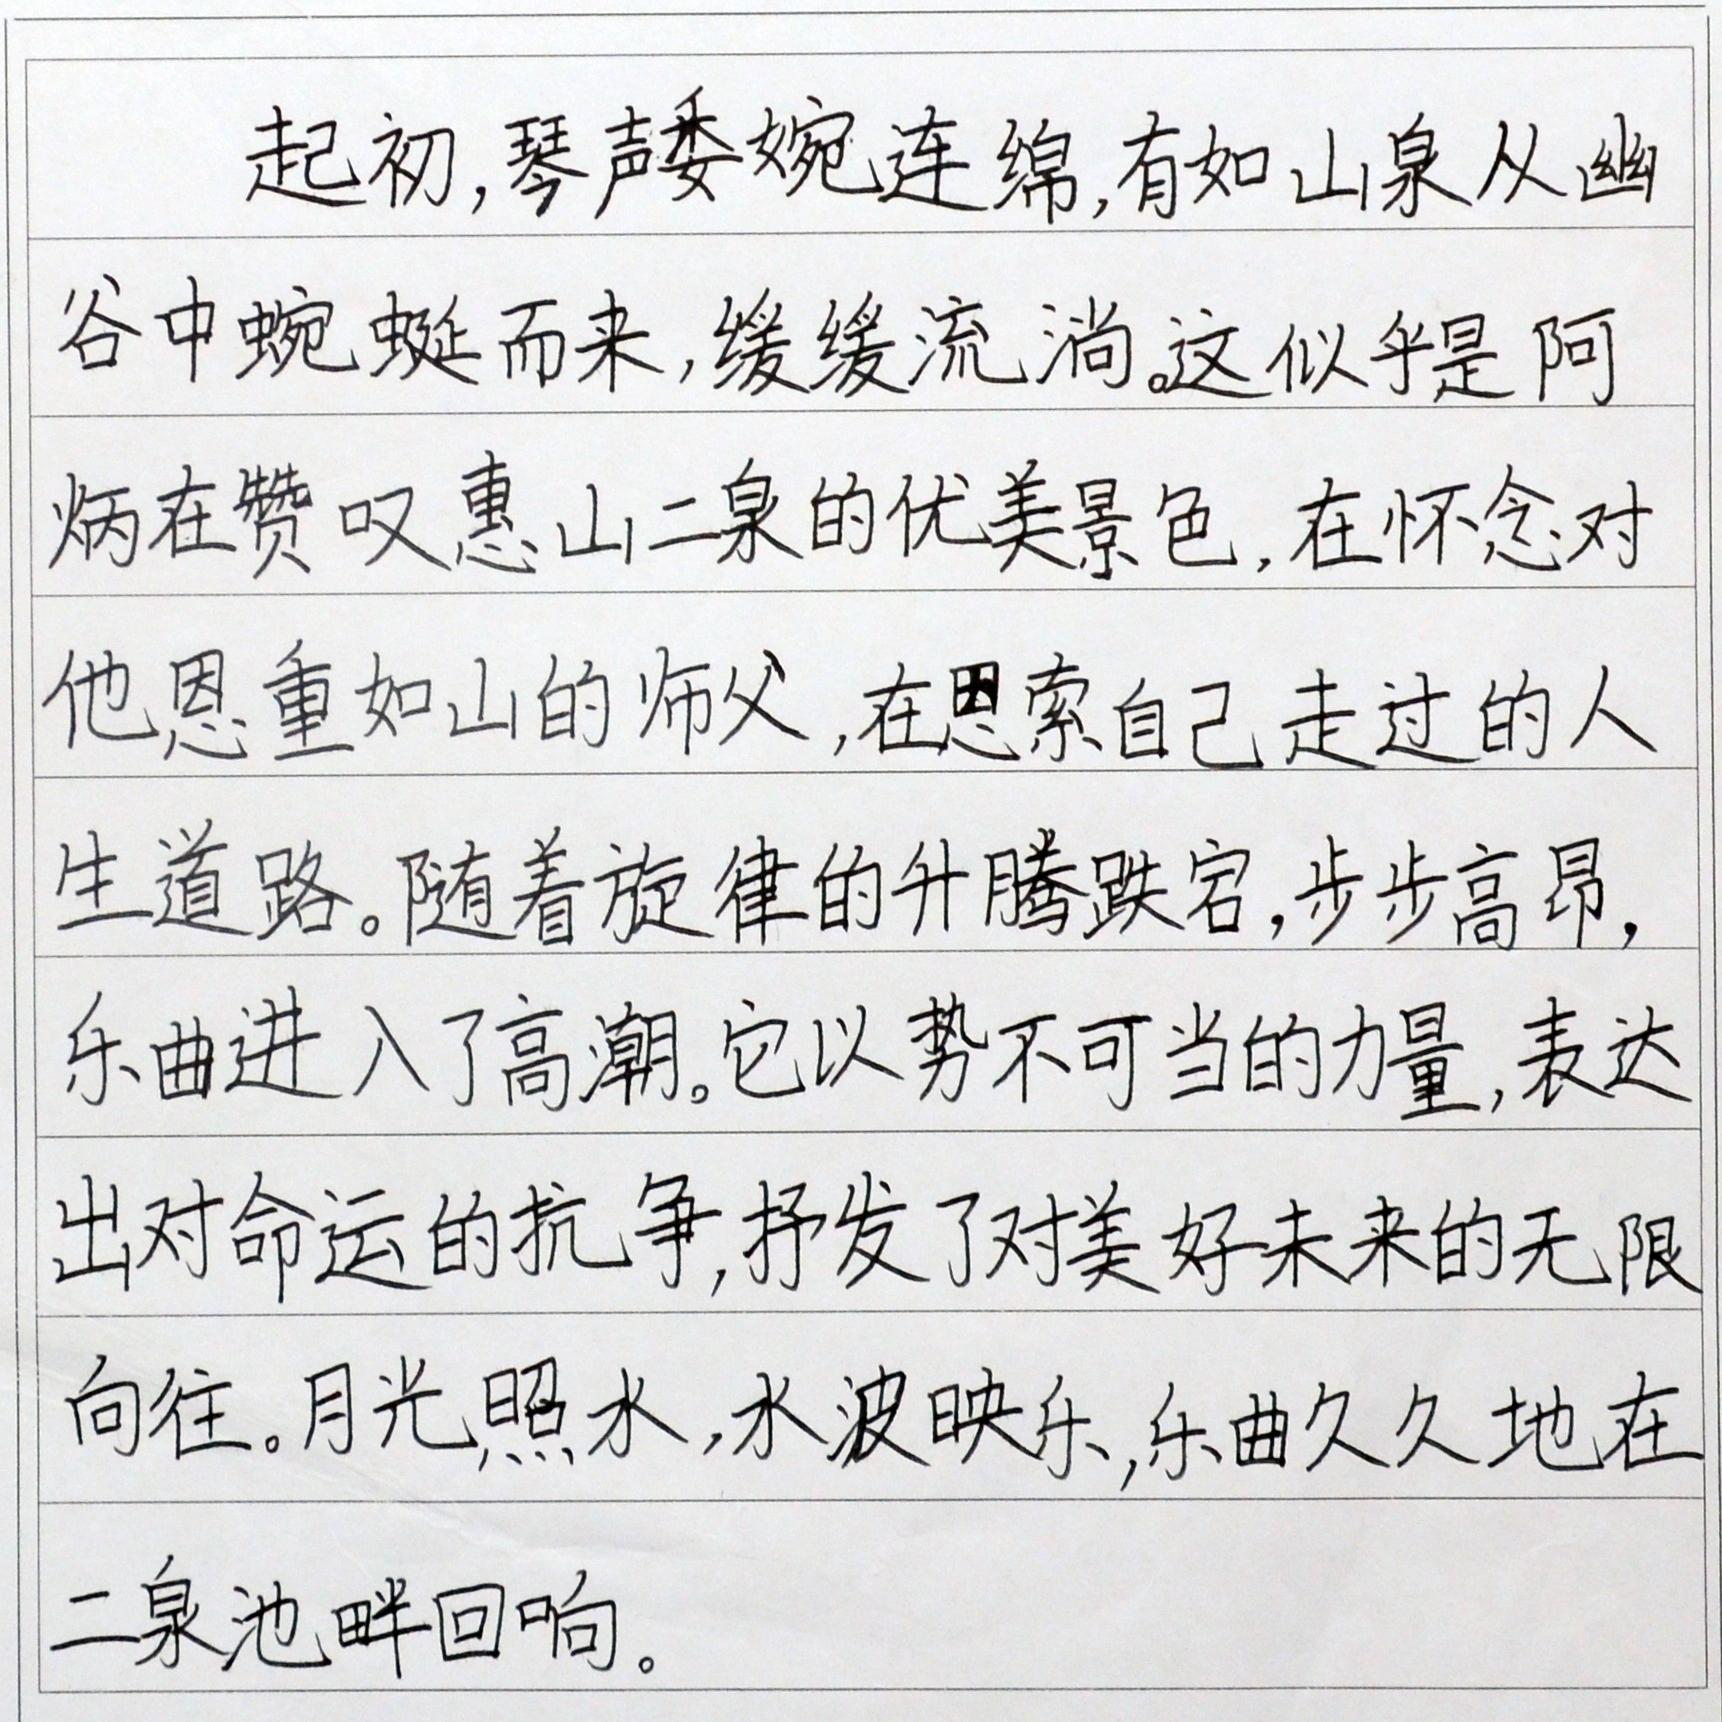 起初,琴声委婉连绵,有如山泉从幽
谷中蜿蜒而来,缓缓流淌。这似乎是阿
炳在赞叹惠山二泉的优美景色,在怀念对
他恩重如山的师父,在思索自己走过的人
生道路。随着旋律的升腾跌宕,步步高昂,
乐曲进入了高潮。它以势不可当的力量,表达
出对命运的抗争,抒发了对美好未来的无限
向往。月光照水,水波映乐,乐曲久久地在
二泉池畔回响。